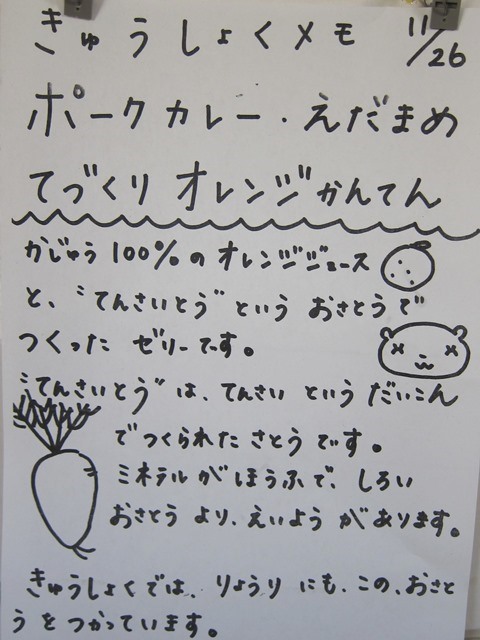 きゅうしょくメモ 11/26
ポークカレー・えだまめ
てづくり オレンジかんてん
かじゅう100%のオレンジジュース
と、"てんさいとう"という おさとうで
つくった ゼリーです。
"てんさいとう"は、てんさい という だいこん
でつくられた さとう です。
ミネラルが ほうふで、しろい
おさとう より、えいよう があります。
きゅうしょくでは、りょうり にも、この、おさと
う を つかっています。